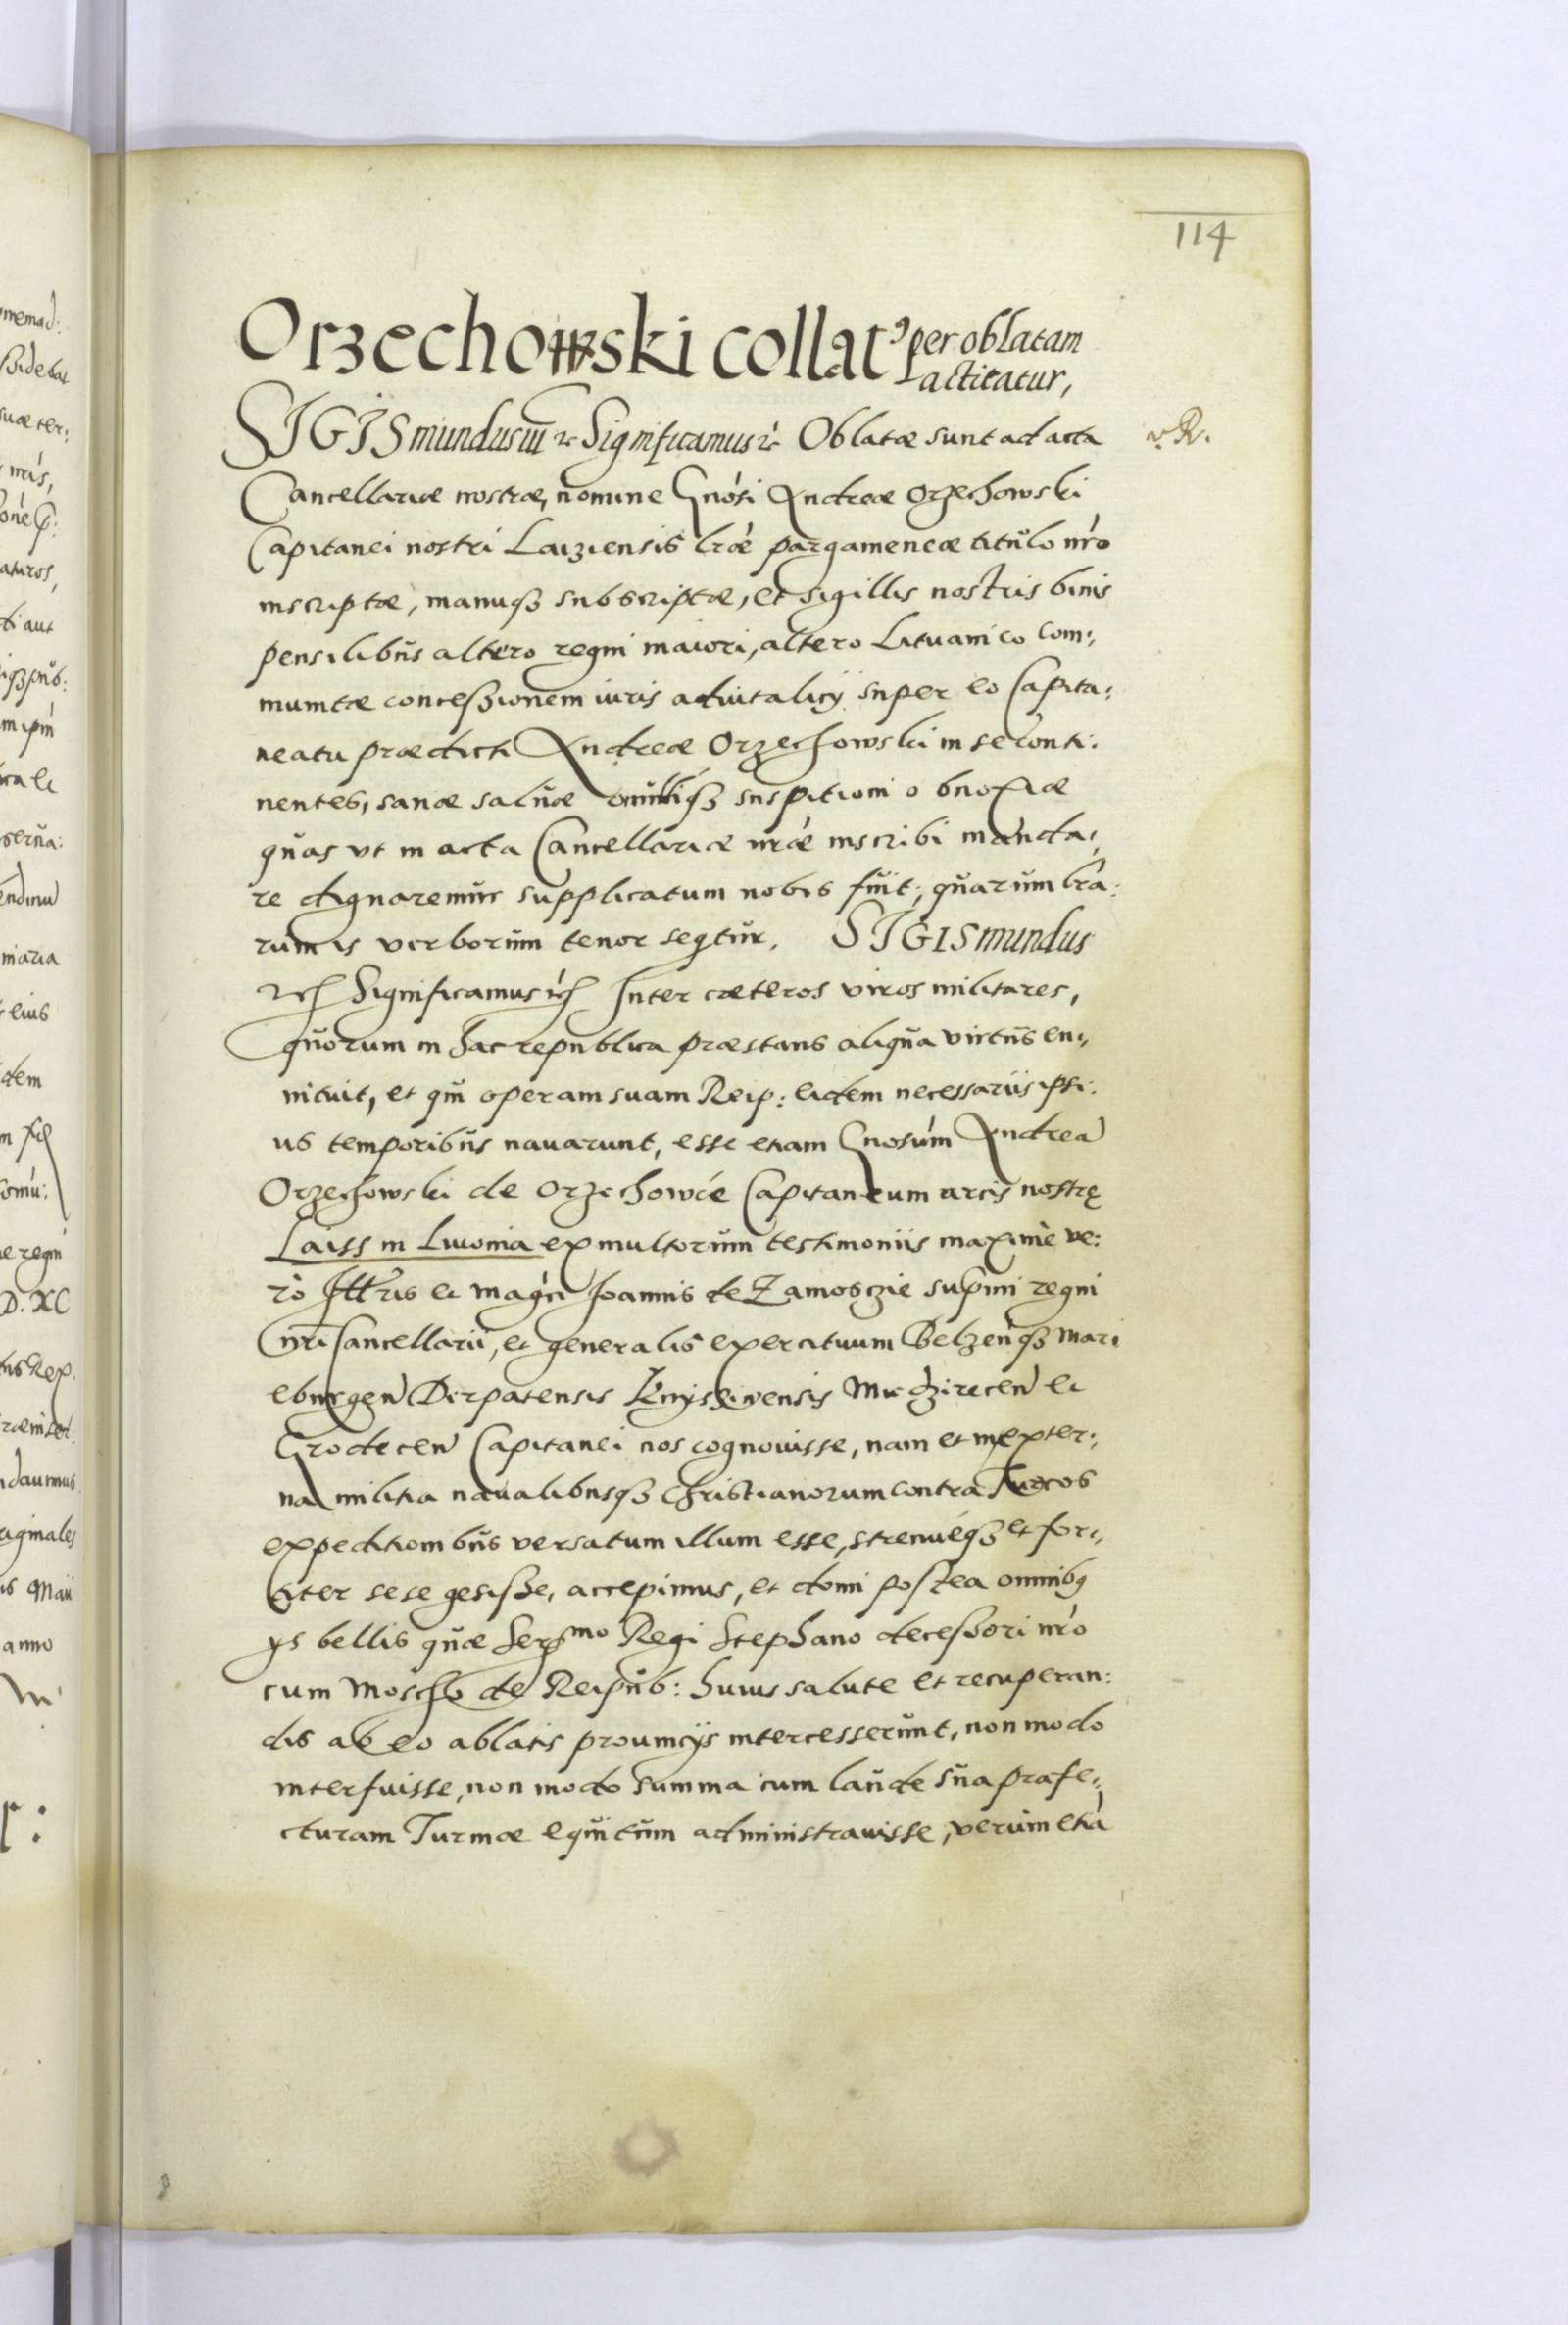 114
Orzechowski collatꝰ per oblatam
actitatur,
SIGISmundus iii ꝛc Significamus ꝛc Oblatæ sunt ad acta
v. R.
Cancellariæ nostræ, nomine Gnosi Andreæ Orzechowski
Capitanei nostri Laiziensis lræ pargameneæ titulo nro
inscriptæ, manuqꝫ subscriptæ, et sigillis nostris binis
pensilibus altero regni maiori, altero Lituanico com:
munitæ concessionem iuris aduitalicij super eo Capita:
neatu prædicti Andreæ Orzechowski in se conti:
nentes, sanæ saluæ nulliqꝫ suspitioni obnoxiæ
quas vt in acta Cancellariæ nræ inscribi manda:
re dignaremur supplicatum nobis fuit, quarum lra:
rum is verborum tenor seqtur. SIGISmundus
ꝛc Significamus ꝛc Inter cæteros viros militares,
quorum in hac republica præstans aliqua virtus eni:
nituit, et qui operam suam Reip: eidem necessariis ipsi:
us temporibus nauarunt, esse etiam Gnosum Andreã
Orzechowski de Orzechowce Capitaneum arcis nostrę
Laiss in Liuonia ex multorum testimoniis maximè ve:
rò Illris et magci Joannis de Zamosczie supmi regni
nri Cancellarii, et generalis exercituum Belzenqꝫ Mari
eburgen Derpatensis Knyszinensis Miedzirecen et
Grodecen Capitanei nos cognouisse, nam et in exter:
na militia naualibusqꝫ Christianorum contra Turcos
expeditionibus versatum illum esse, strenuéqꝫ et for:
titer sese gesisse, accepimus, et domi postea omnibꝯ
ijs bellis quæ Sermo Regi Stephano decessori nro
cum Moscho de Reipub: huius salute et recuperan:
dis ab eo ablatis prouincijs intercesserunt, non modo
interfuisse, non modo summa cum laude sua præfe:
cturam Turmæ equitum administrauisse, verum etiã